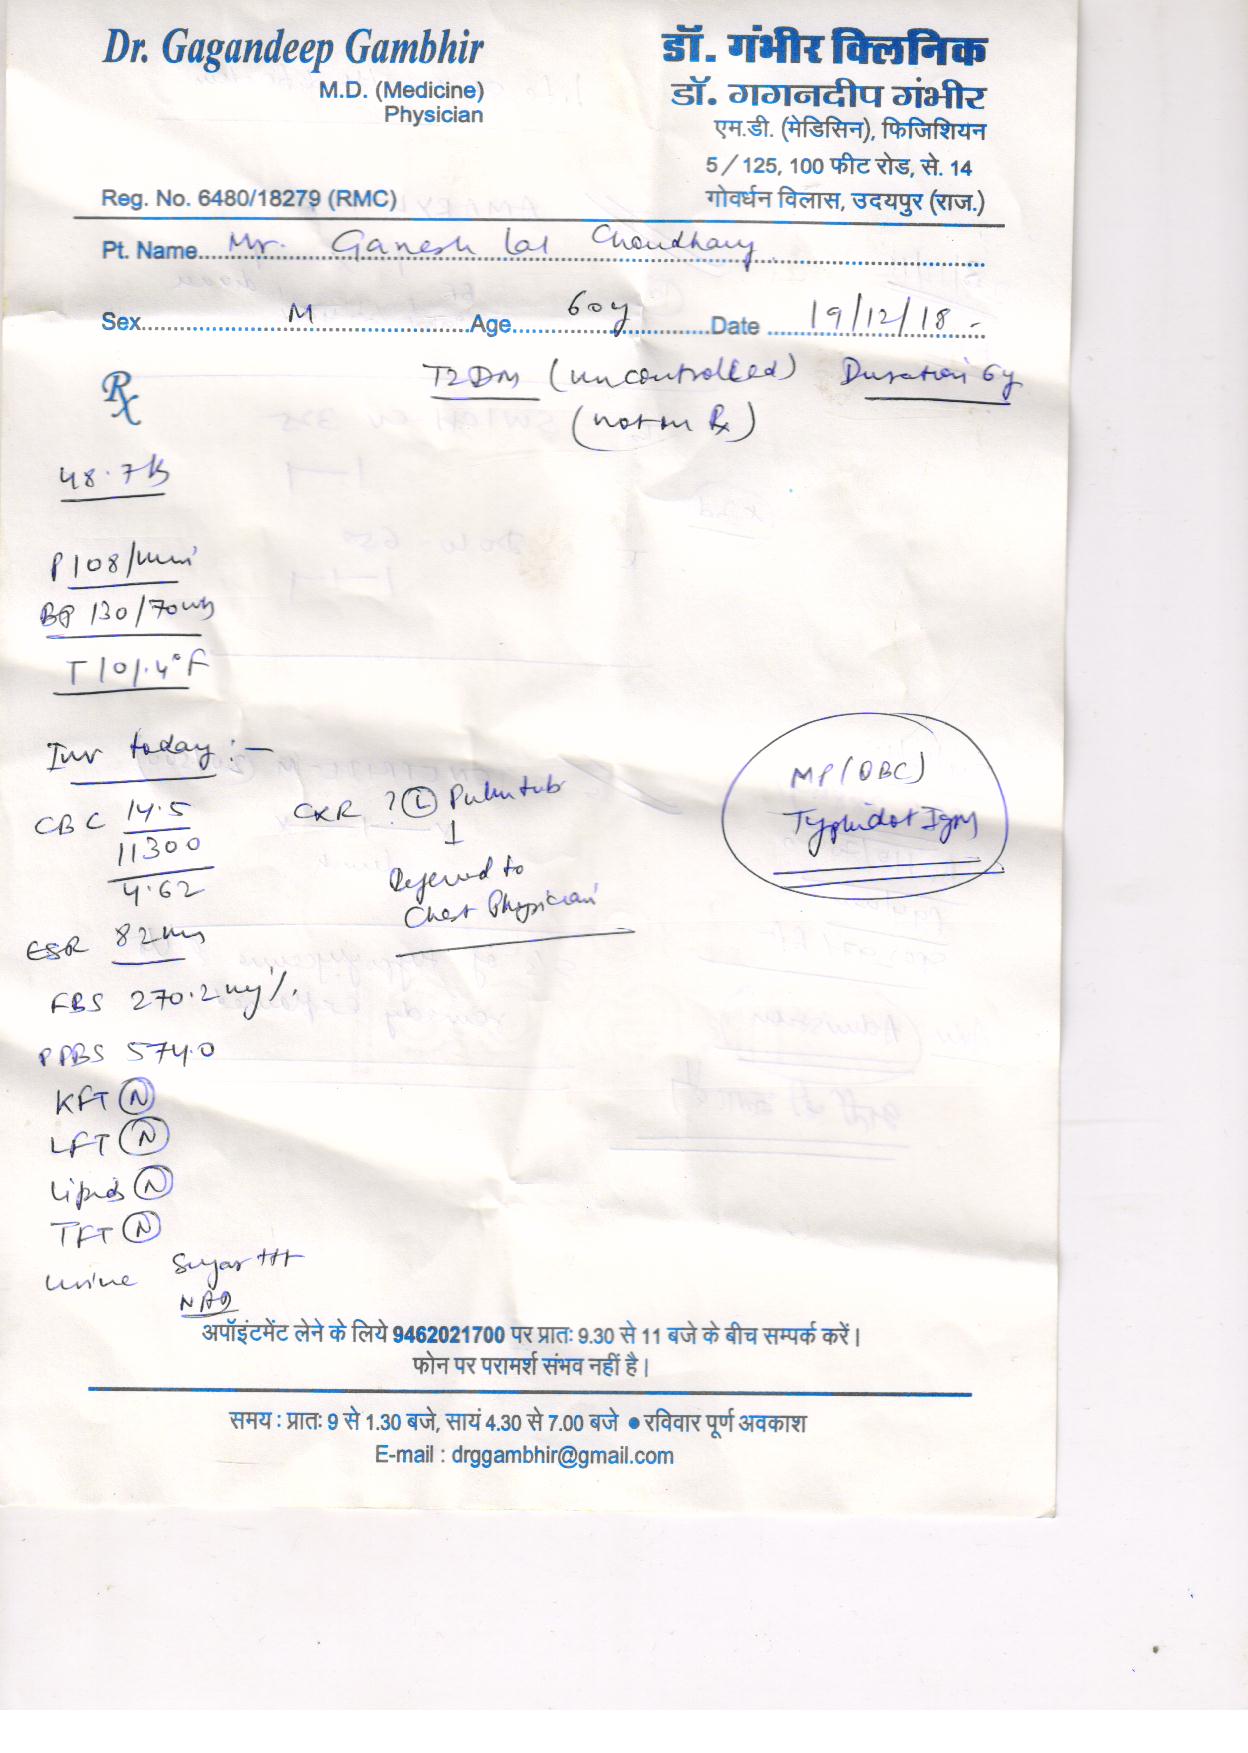 Dr. Gagandeep Gambhir
M.D. (Medicine)
Physician
Reg. No. 6480/18279 (RMC)
डॉ. गंभीर क्लिनिक
डॉ. गगनदीप गंभीर
एम.डी. (मेडिसिन), फिजिशियन
5/125, 100 फीट रोड, से. 14
गोवर्धन विलास, उदयपुर (राज.)
Pt. Name Mr. Ganesh Lal Choudhary
Sex M Age 60y Date 19/12/18
Rx
T2DM (uncontrolled) Duration 6y
(not on Rx)
48.7 K
P 108/min
BP 130/70
T 101.4°F
Inv today :-
CBC 14.5
11300
4.62
CXR ? (L) Pulm tub
Referred to
Chest Physician
MP (QBC)
Typhidot IgM
ESR 82
FBS 270.2 mg%
PPBS 574.0
KFT (N)
LFT (N)
Lipids (N)
TFT (N)
Urine Sugar +++
NAD
अपॉइंटमेंट लेने के लिये 9462021700 पर प्रातः 9.30 से 11 बजे के बीच सम्पर्क करें।
फोन पर परामर्श संभव नहीं है।
समय : प्रातः 9 से 1.30 बजे, सायं 4.30 से 7.00 बजे ● रविवार पूर्ण अवकाश
E-mail : drggambhir@gmail.com